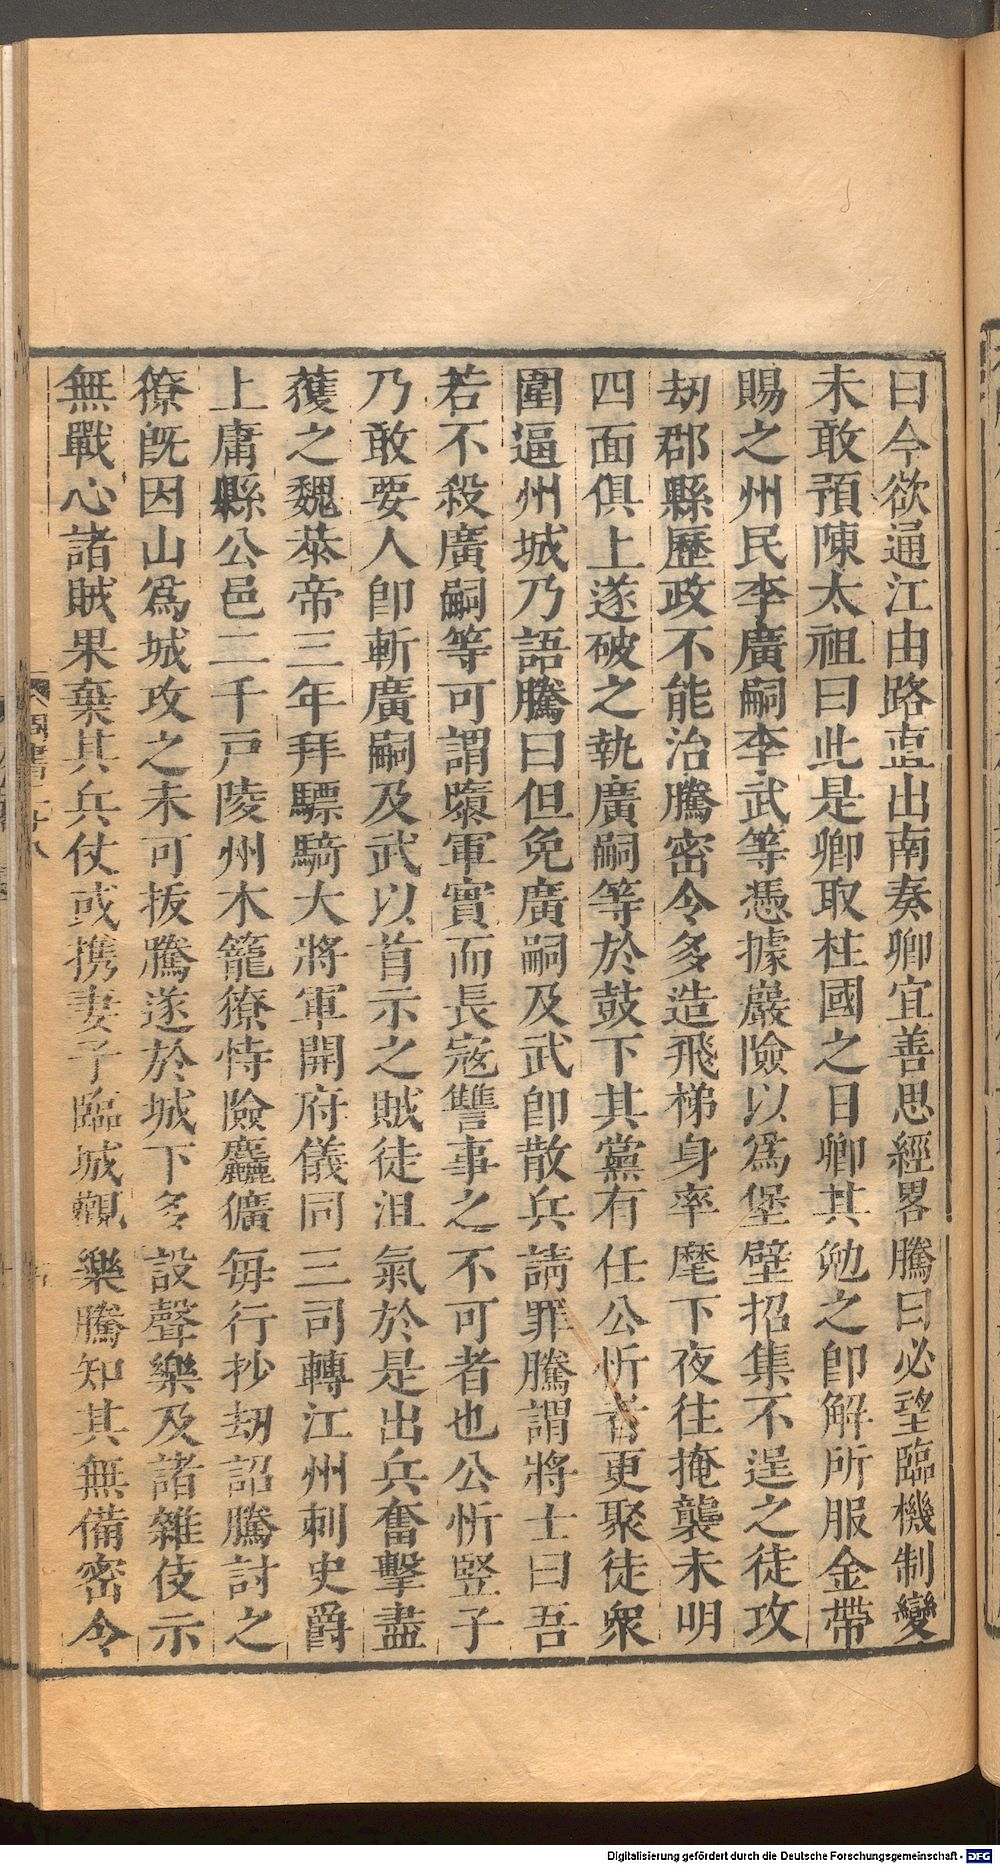 曰今欲通江由路直出南奏卿宜善思經畧騰曰必望臨機制變
未敢預陳太祖曰此是卿取柱國之日卿其勉之即解所服金帶
賜之州民李廣嗣李武等憑據巖險以爲堡壁招集不逞之徒攻
劫郡縣歷政不能治騰密令多造飛梯身率麾下夜往掩襲未明
四面俱上遂破之執廣嗣等於鼓下其黨有任公忻者更聚徒衆
圍逼州城乃語騰曰但免廣嗣及武即散兵請罪騰謂將士曰吾
若不殺廣嗣等可謂隳軍實而長寇讐事之不可者也公忻豎子
乃敢要人即斬廣嗣及武以首示之賊徒沮氣於是出兵奮擊盡
獲之魏恭帝三年拜驃騎大將軍開府儀同三司轉江州刺史爵
上庸縣公邑二千戸陵州木籠獠恃險麤獷毎行抄劫詔騰討之
獠既因山爲城攻之未可拔騰遂於城下多設聲樂及諸雜伎示
無戰心諸賊果棄其兵仗或携妻子臨城觀樂騰知其無備密令
周書二十八
Digitalisierung gefördert durch die Deutsche Forschungsgemeinschaft - DFG